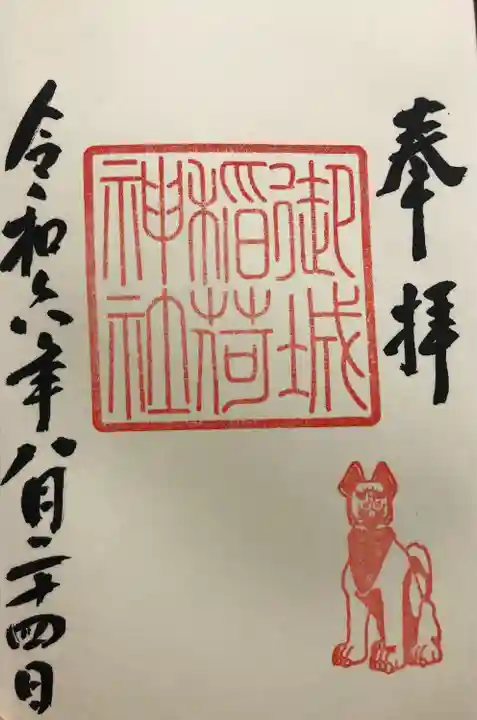 奉拝
御城
稲荷
神社
令和六年八月二十四日